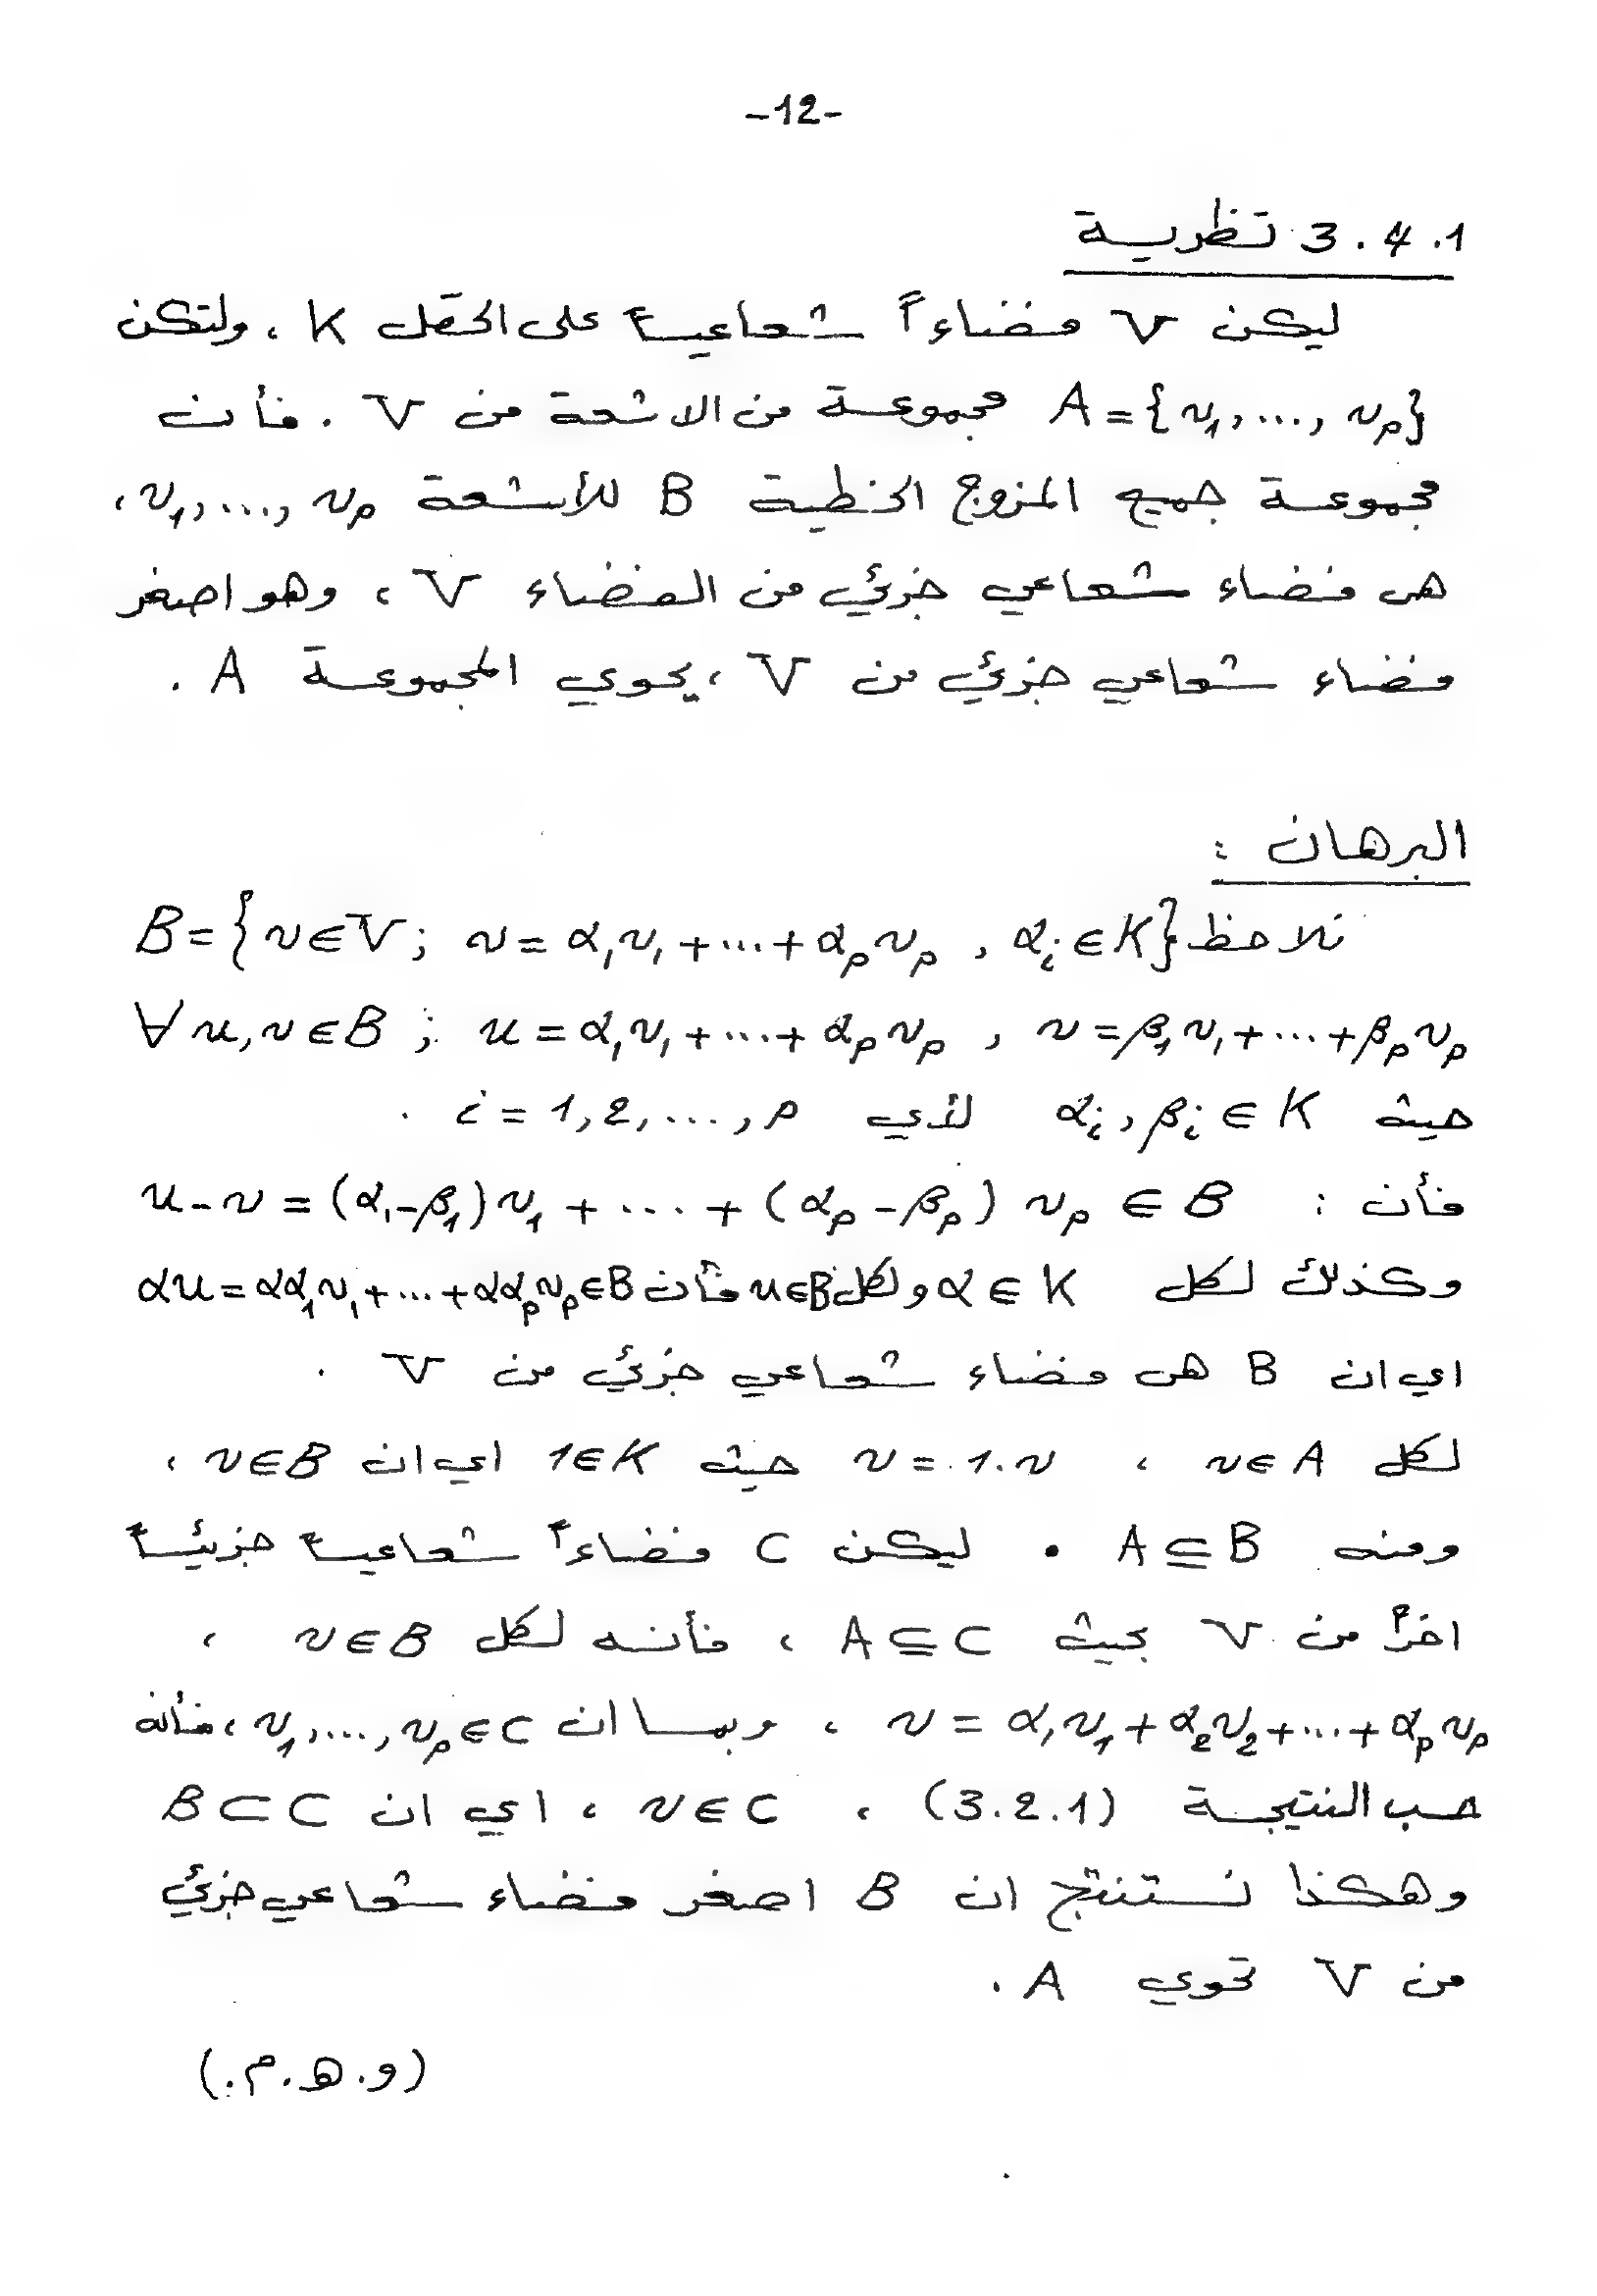 -12-
3.4.1 نظرية
ليكن V فضاءاً شعاعياً على الحقل K ، ولتكن
A = {v₁, ..., vₚ} مجموعة من الاشعة من V . فأن
مجموعة جميع المزوج الخطية B للأشعة v₁, ..., vₚ ،
هى فضاء شعاعي جزئي من الفضاء V ، وهو اصغر
فضاء شعاعي جزئي من V ، يحوي المجموعة A .
البرهان :
نلاحظ B = {v ∈ V ; v = α₁v₁ + ... + αₚvₚ , αᵢ ∈ K}
∀ u, v ∈ B ; u = α₁v₁ + ... + αₚvₚ , v = β₁v₁ + ... + βₚvₚ
حيث αᵢ, βᵢ ∈ K لأي i = 1, 2, ..., p .
فأن : u - v = (α₁ - β₁)v₁ + .... + (αₚ - βₚ) vₚ ∈ B
وكذلك لكل α ∈ K ولكل u ∈ B فأن αu = αα₁v₁ + ... + ααₚvₚ ∈ B
اي ان B هى فضاء شعاعي جزئي من V .
لكل v ∈ A ، v = 1.v حيث 1 ∈ K اي ان v ∈ B ،
ومنه A ⊆ B . ليكن C فضاءاً شعاعياً جزئياً
اخرً من V بحيث A ⊆ C ، فأنه لكل v ∈ B ،
v = α₁v₁ + α₂v₂ + ... + αₚvₚ ، وبما ان v₁, ..., vₚ ∈ C ، فأنه
حسب النتيجة (3.2.1) ، v ∈ C ، اي ان B ⊂ C
وهكذا نستنتج ان B اصغر فضاء شعاعي جزئي
من V تحوي A .
(و.ه.م.)